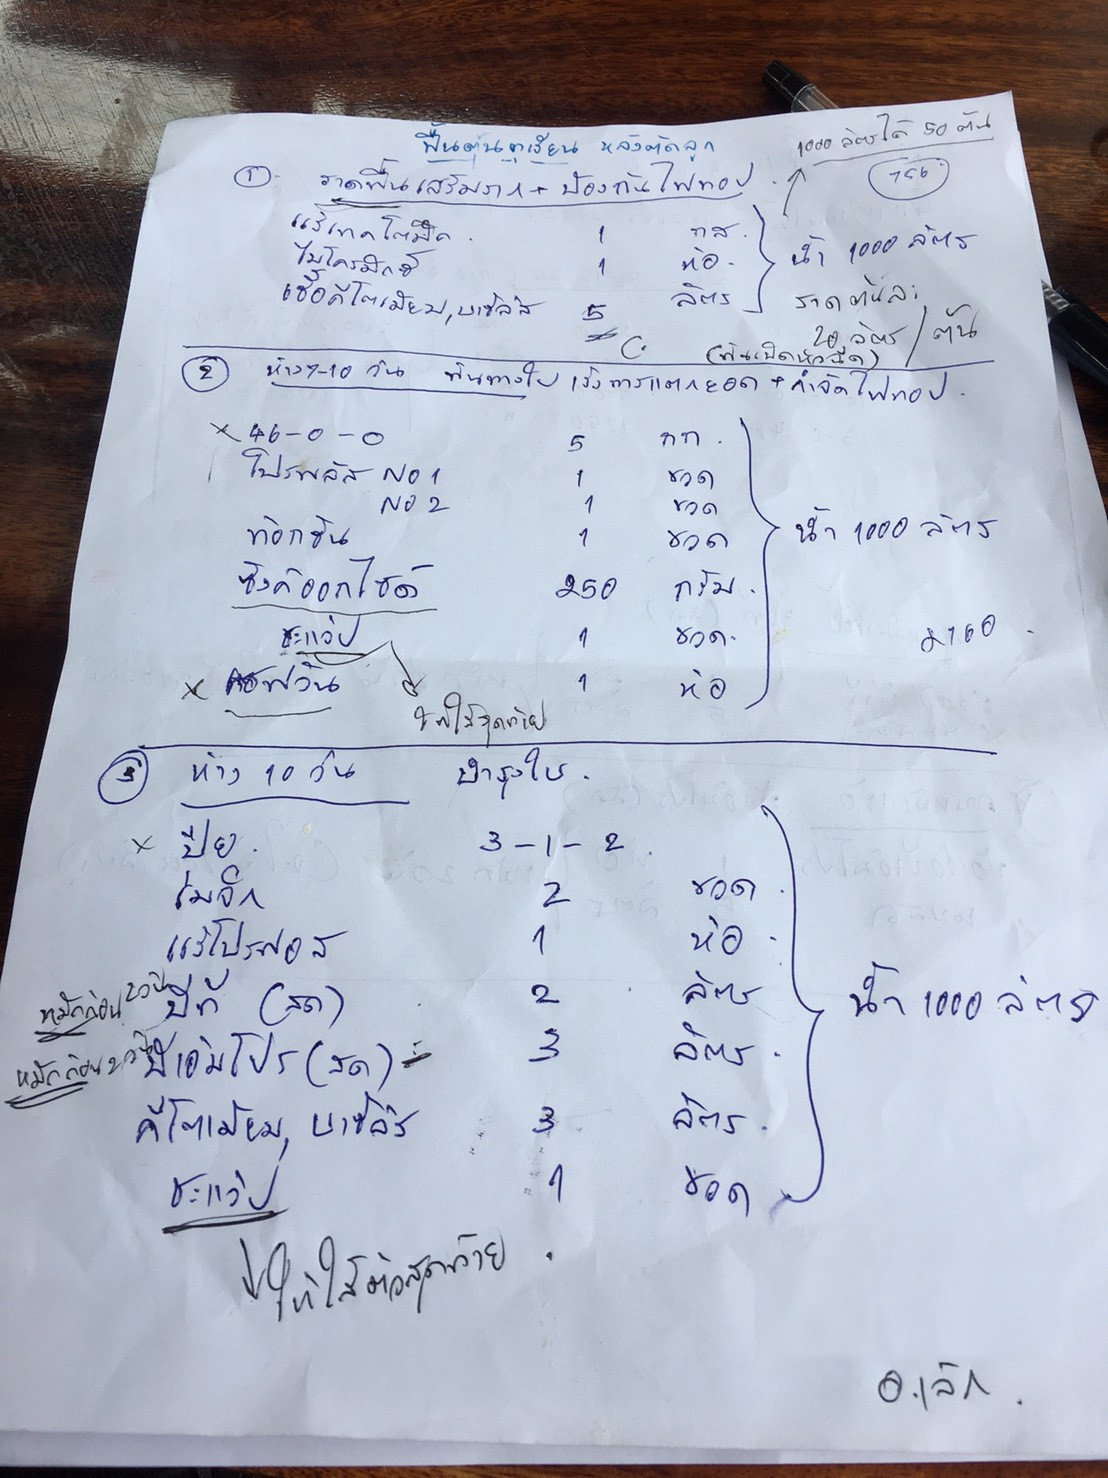 ฟื้นต้นทุเรียน หลังตัดลูก
1000 ลิตรได้ 50 ต้น
① ราดพื้นเสริมราก + ป้องกันไฟทอป.
แร่เทคโตมิค 1 กส.
ไมโครมิกซ์ 1 ห่อ.
เชื้อคีโตเมียม, บาซิลัส 5 ลิตร
น้ำ 1000 ลิตร
ราดต้นละ
20 ลิตร/ต้น
② ห่าง 7-10 วัน พ่นทางใบ เร่งการแตกยอด + กำจัดไฟทอป.
× 46-0-0 5 กก.
โปรพลัส NO 1 1 ขวด
NO 2 1 ขวด
ท๊อกชิน 1 ขวด
ซิงค์ออกไซด์ 250 กรัม.
ชะแว๊ป 1 ขวด.
× 1 ห่อ
น้ำ 1000 ลิตร
2160.
ใส่สุดท้าย
③ ห่าง 10 วัน บำรุงใบ.
× ปุ๋ย. 3-1-2.
เมจิก 2 ขวด.
แร่โปรฟอส 1 ห่อ.
หมักก่อน 2 วัน บีที (สด) 2 ลิตร
หมักก่อน 2 วัน บีเอ็มโปร (สด) 3 ลิตร.
คีโตเมียม, บาซิลัส 3 ลิตร.
ชะแว๊ป 1 ขวด
น้ำ 1000 ลิตร
ใส่ตัวสุดท้าย.
อ.เล็ก.